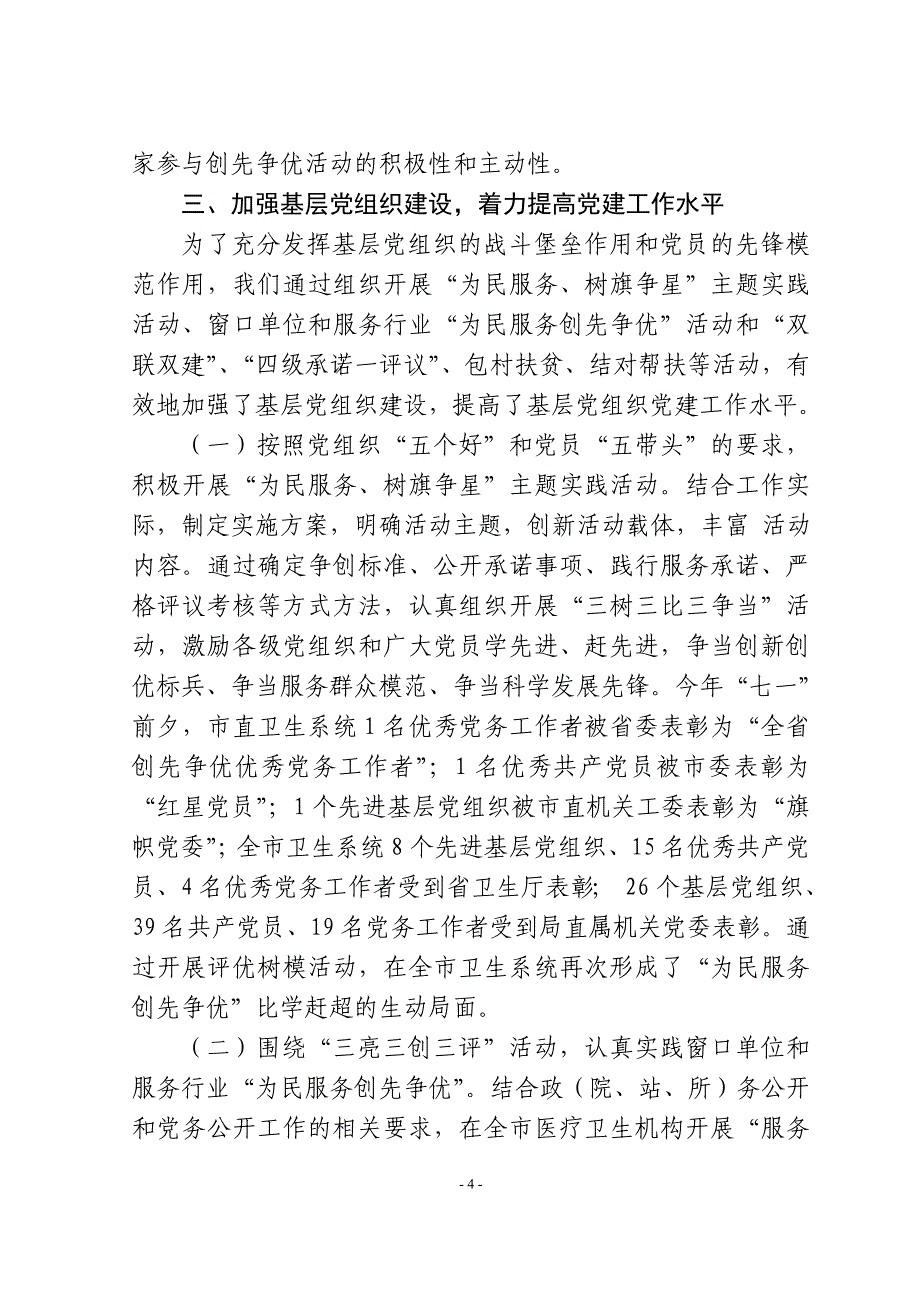 家参与创先争优活动的积极性和主动性。
三、加强基层党组织建设，着力提高党建工作水平
为了充分发挥基层党组织的战斗堡垒作用和党员的先锋模
范作用，我们通过组织开展“为民服务、树旗争星”主题实践
活动、窗口单位和服务行业“为民服务创先争优”活动和“双
联双建”、“四级承诺一评议”、包村扶贫、结对帮扶等活动，有
效地加强了基层党组织建设，提高了基层党组织党建工作水平。
（一）按照党组织“五个好”和党员“五带头”的要求，
积极开展“为民服务、树旗争星”主题实践活动。结合工作实
际，制定实施方案，明确活动主题，创新活动载体，丰富 活动
内容。通过确定争创标准、公开承诺事项、践行服务承诺、严
格评议考核等方式方法，认真组织开展“三树三比三争当”活
动，激励各级党组织和广大党员学先进、赶先进，争当创新创
优标兵、争当服务群众模范、争当科学发展先锋。今年“七一”
前夕，市直卫生系统 1 名优秀党务工作者被省委表彰为“全省
创先争优优秀党务工作者”；1 名优秀共产党员被市委表彰为
“红星党员”；1 个先进基层党组织被市直机关工委表彰为“旗
帜党委”；全市卫生系统 8 个先进基层党组织、15 名优秀共产党
员、4 名优秀党务工作者受到省卫生厅表彰； 26 个基层党组织、
39 名共产党员、19 名党务工作者受到局直属机关党委表彰。通
过开展评优树模活动，在全市卫生系统再次形成了“为民服务
创先争优”比学赶超的生动局面。
（二）围绕“三亮三创三评”活动，认真实践窗口单位和
服务行业“为民服务创先争优”。结合政（院、站、所）务公开
和党务公开工作的相关要求，在全市医疗卫生机构开展“服务
- 4 -